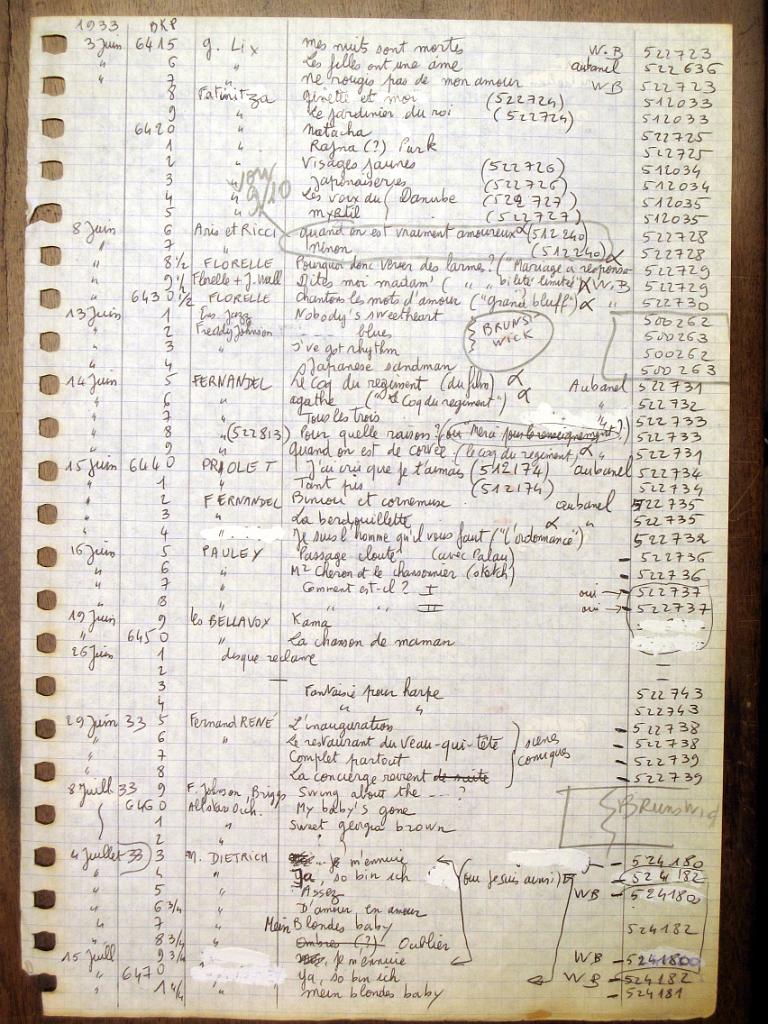 1933 BKP
3 Juin 6415 G. Lix mes nuits sont mortes W.B 522723
" 6 " Les filles ont une âme aubanel 522636
" 7 " ne rougis pas de mon amour WB 522723
8 Fatinitza Ginette et moi (522724) 512033
9 " Le jardinier du roi (522724) 512033
6420 " Natacha 522725
1 " Rajna (?) Park 522725
2 " Visages jaunes (522726) 512034
3 " Japonaiseries (522726) 512034
4 " Les voix du Danube (522727) 512035
5 " Myrtil (522727) 512035
voir 9/10
8 Juin 6 Aris et Ricci quand on est vraiment amoureux α (512240) 522728
" 7 " Ninon (512240) 522728
" 8 1/2 FLORELLE Pourquoi donc verser des larmes? ("Mariage à responsa- α 522729
" 9 1/2 Florelle + J. Wall Dites moi madam' ( " " bilité limitée") α W.B 522729
" 6430 1/2 FLORELLE Chantons les mots d'amour ("Grand bluff") α " 522730
13 Juin 1 Ens. Jazz Nobody's sweetheart 500262
" 2 Freddy Johnson blues BRUNSWICK 500263
" 3 I've got rhythm 500262
" 4 Japanese sandman 500263
14 Juin 5 FERNANDEL Le coq du regiment (du film) α Aubanel 522731
" 6 " agathe ("Le Coq du regiment") α " 522732
" 7 " Tous les trois " 522733
" 8 " (522813) Pour quelle raison? (ou "Merci pour le renseignement"?) 522733
" 9 " Quand on est de corvée (le coq du regiment) α " 522731
15 Juin 6440 PRIOLET J'ai cru que je t'aimais (512174) aubanel 522734
" 1 " Tant pis (512174) 522734
" 2 FERNANDEL Biniou et cornemuse aubanel 522735
" 3 " La berdouillette " 522735
" 4 Je suis l'homme qu'il vous faut ("L'ordonnance") α 522732
16 Juin 5 PAULEY Passage clouté (avec Palau) - 522736
" 6 " Mr Cheron et le chansonnier (sketch) - 522736
" 7 " Comment est-il? I oui → - 522737
" 8 " " " II oui → - 522737
19 Juin 9 les BELLAVOX Kama
" 6450 " La chanson de maman
26 Juin 1 disque reclame
2 —
3 Fantaisie pour harpe 522743
4 " " 522743
29 Juin 33 5 Fernand RENÉ L'inauguration - 522738
" 6 " Le restaurant du Veau-qui-tête scènes - 522738
" 7 Complet partout comiques - 522739
" 8 La concierge revient de suite - 522739
8 Juill 33 9 F. Johnson, Briggs Swing about the ...? Brunswick
6460 Allstars Orch. My baby's gone
1 " Sweet georgia brown
2 " ?
4 Juillet 33 3 M. DIETRICH Je m'ennuie - 524180
" 4 " Ja, so bin ich (ou Je suis ainsi) - 524182
" 5 " Assez WB - 524180
" 6 3/4 " D'amour en amour
" 7 " Mein Blondes baby 524182
" 8 3/4 " Ombres (?) Oublier
15 Juill 9 3/4 Je m'ennuie WB - 524180
" 6470 Ja, so bin ich WB - 524182
" 1 4/4 " mein blondes baby - 524181